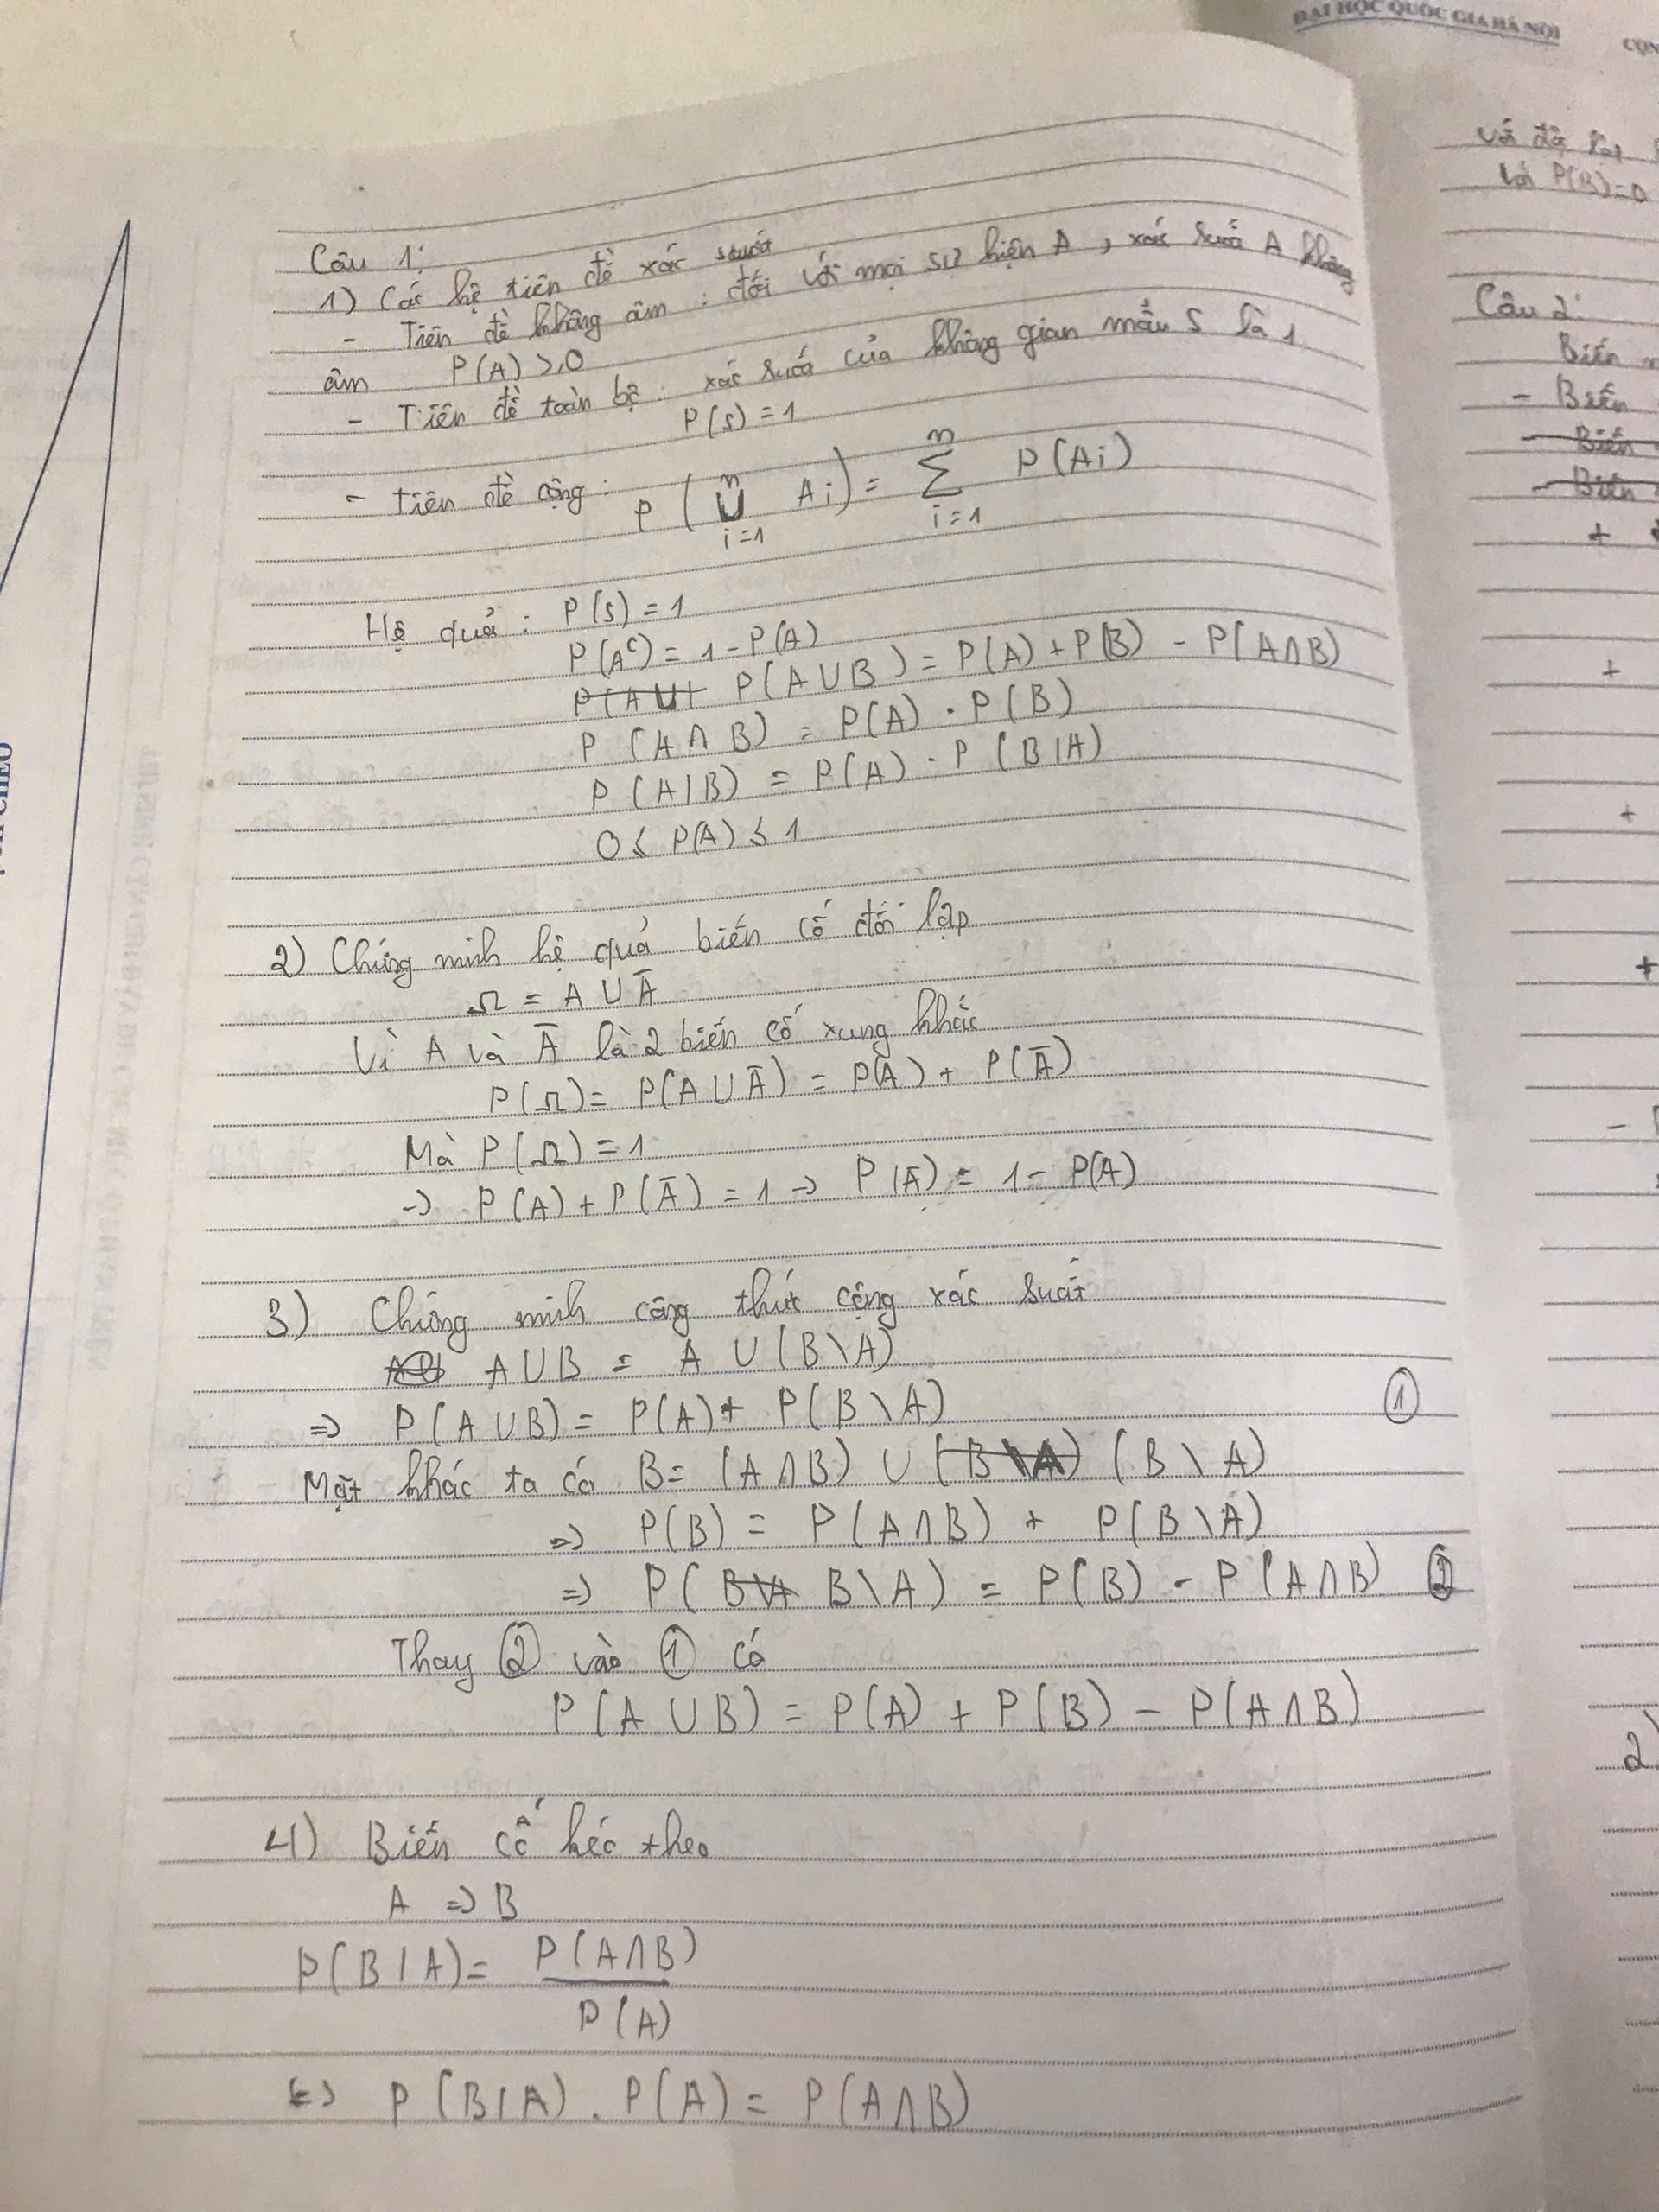 ĐẠI HỌC QUỐC GIA HÀ NỘI
Câu 1:
1) Các hệ tiên đề xác suất
- Tiên đề không âm : đối với mọi sự kiện A, xác suất A không
âm P(A) ≥ 0
- Tiên đề toàn bộ : xác suất của không gian mẫu S là 1
P(S) = 1
- Tiên đề cộng : P(⋃_{i=1}^{n} Ai) = ∑_{i=1}^{n} P(Ai)
Hệ quả : P(S) = 1
P(Aᶜ) = 1 - P(A)
P(A U B) = P(A) + P(B) - P(A ∩ B)
P(A ∩ B) = P(A) . P(B)
P(A|B) = P(A) . P(B|A)
0 ≤ P(A) ≤ 1
2) Chứng minh hệ quả biến cố đối lập
Ω = A U Ā
Vì A và Ā là 2 biến cố xung khắc
P(Ω) = P(A U Ā) = P(A) + P(Ā)
Mà P(Ω) = 1
→ P(A) + P(Ā) = 1 → P(Ā) = 1 - P(A)
3) Chứng minh công thức cộng xác suất
A U B = A U (B \ A)
⇒ P(A U B) = P(A) + P(B \ A) ①
Mặt khác ta có B = (A ∩ B) U (B \ A)
⇒ P(B) = P(A ∩ B) + P(B \ A)
⇒ P(B \ A) = P(B) - P(A ∩ B) ②
Thay ② vào ① có
P(A U B) = P(A) + P(B) - P(A ∩ B)
4) Biến cố kéo theo
A ⇒ B
P(B|A) = P(A ∩ B) / P(A)
⇔ P(B|A) . P(A) = P(A ∩ B)
với P(B) = 0
Câu 2:
Biến
- Biến
2)